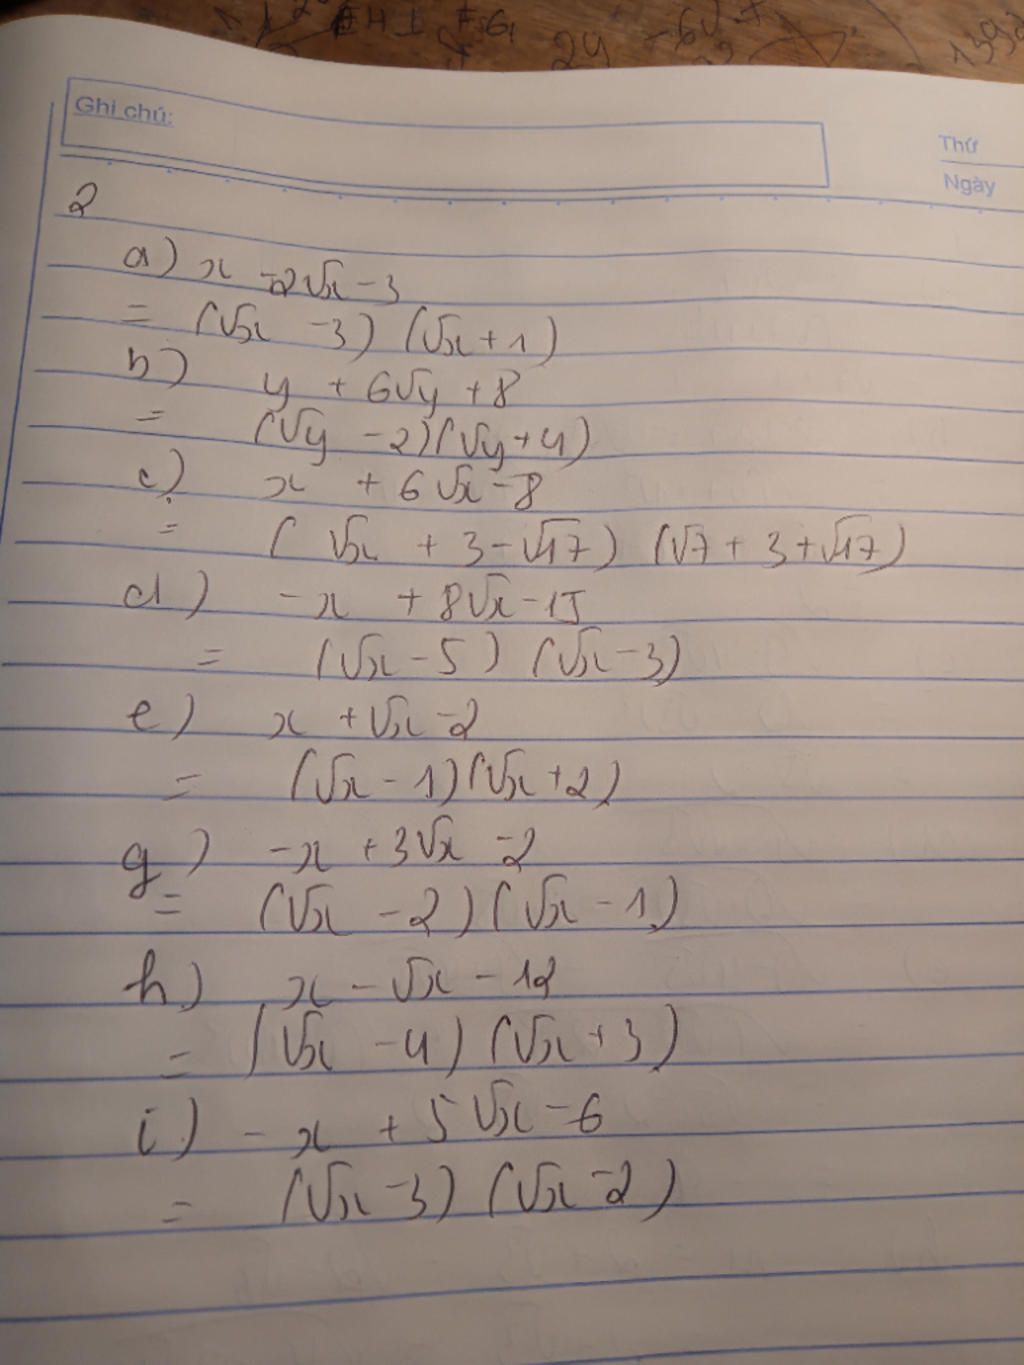 Ghi chú:
Thứ
Ngày
2
a) x -2√x - 3
= (√x - 3) (√x + 1)
b) y + 6√y + 8
= (√y - 2)(√y + 4)
c) x + 6√x - 8
= (√x + 3 - √17) (√7 + 3 + √17)
d) -x + 8√x - 15
= (√x - 5) (√x - 3)
e) x + √x - 2
= (√x - 1)(√x + 2)
g) -x + 3√x - 2
= (√x - 2)(√x - 1)
h) x - √x - 12
= (√x - 4) (√x + 3)
i) -x + 5√x - 6
= (√x - 3) (√x - 2)